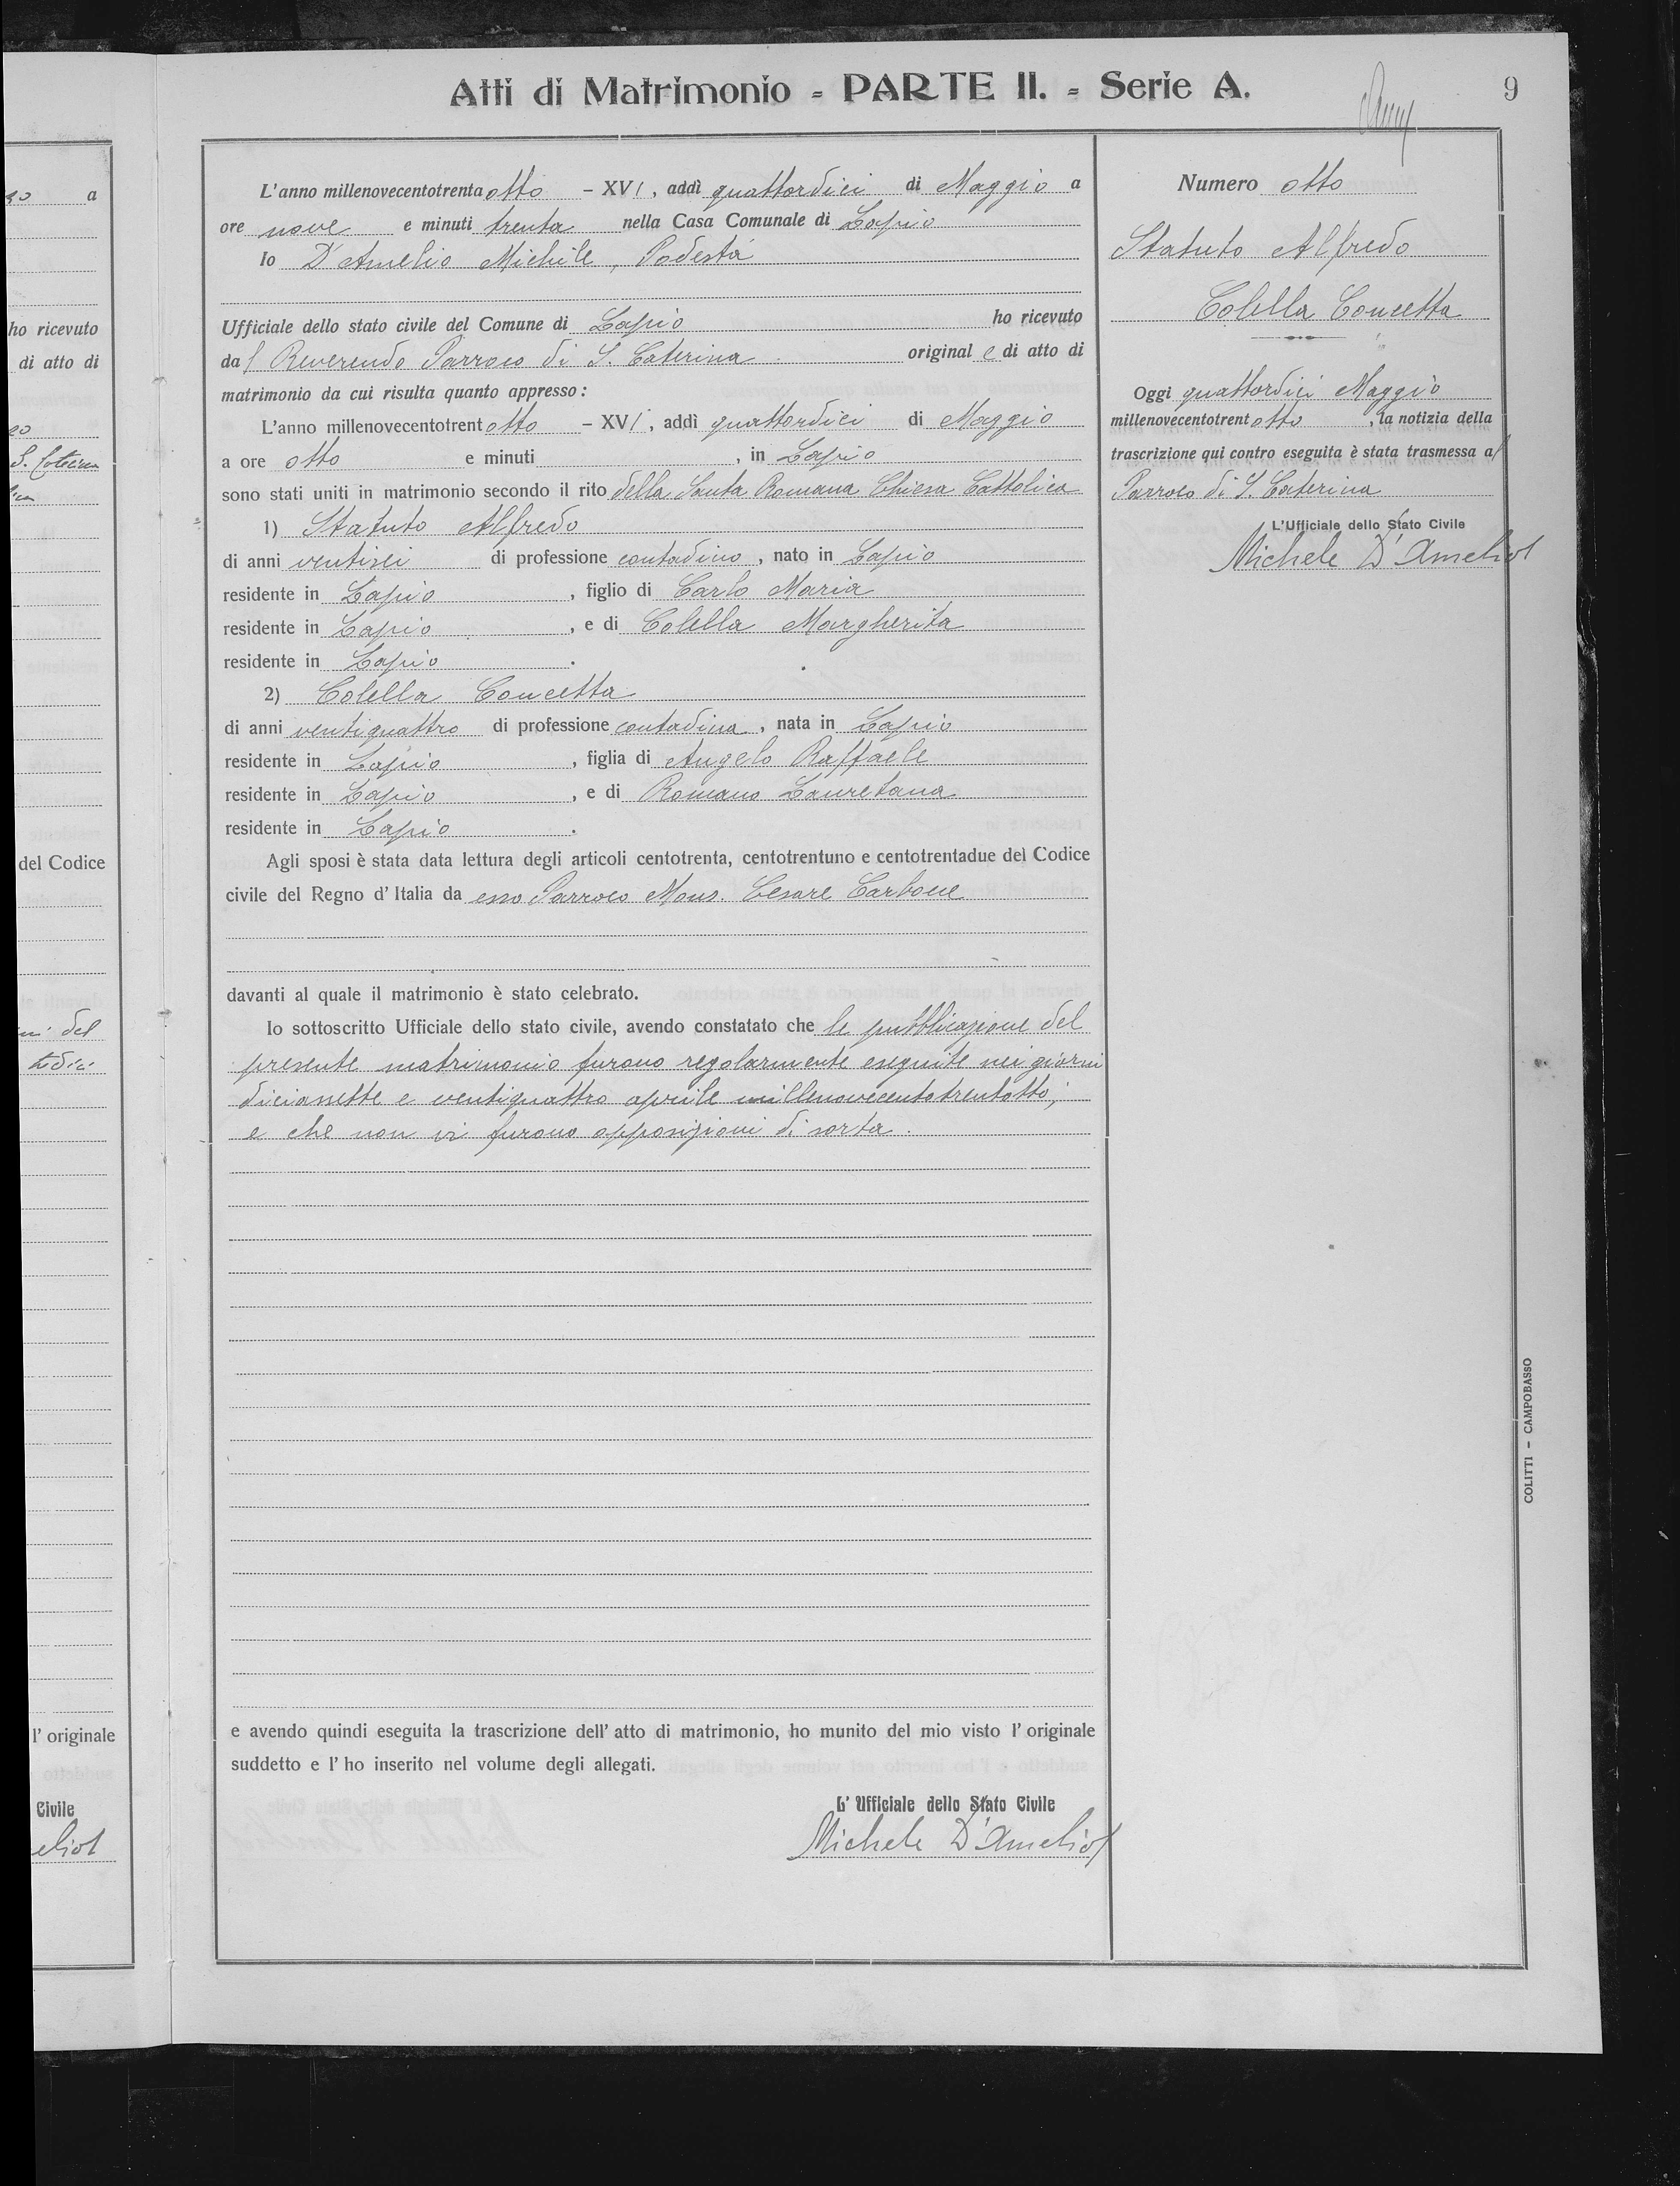 Atti di Matrimonio - PARTE II. - Serie A.
9
L'anno millenovecentotrentaotto - XVI, addì quattordici di Maggio a
ore nove e minuti trenta nella Casa Comunale di Lapio
Io D'Amelio Michele, Podestà
Ufficiale dello stato civile del Comune di Lapio ho ricevuto
dal Reverendo Parroco di S. Caterina originale di atto di
matrimonio da cui risulta quanto appresso:
L'anno millenovecentotrentotto - XVI, addì quattordici di Maggio
a ore otto e minuti , in Lapio
sono stati uniti in matrimonio secondo il rito della Santa Romana Chiesa Cattolica
1) Statuto Alfredo
di anni ventisei di professione contadino, nato in Lapio
residente in Lapio, figlio di Carlo Maria
residente in Lapio, e di Colella Margherita
residente in Lapio.
2) Colella Concetta
di anni ventiquattro di professione contadina, nata in Lapio
residente in Lapio, figlia di Angelo Raffaele
residente in Lapio, e di Romano Lauretana
residente in Lapio.
Agli sposi è stata data lettura degli articoli centotrenta, centotrentuno e centotrentadue del Codice
civile del Regno d'Italia da esso Parroco Mons. Cesare Carbone
davanti al quale il matrimonio è stato celebrato.
Io sottoscritto Ufficiale dello stato civile, avendo constatato che le pubblicazione del
presente matrimonio furono regolarmente eseguite nei giorni
diciassette e ventiquattro aprile millenovecentotrentotto;
e che non vi furono opposizioni di sorta.
e avendo quindi eseguita la trascrizione dell'atto di matrimonio, ho munito del mio visto l'originale
suddetto e l'ho inserito nel volume degli allegati.
L'Ufficiale dello Stato Civile
Michele D'Amelio
Numero otto
Statuto Alfredo
Colella Concetta
Oggi quattordici Maggio
millenovecentotrentotto, la notizia della
trascrizione qui contro eseguita è stata trasmessa al
Parroco di S. Caterina
L'Ufficiale dello Stato Civile
Michele D'Amelio
COLITTI - CAMPOBASSO
a
ho ricevuto
di atto di
S. Caterina
del Codice
del
l'originale
Civile